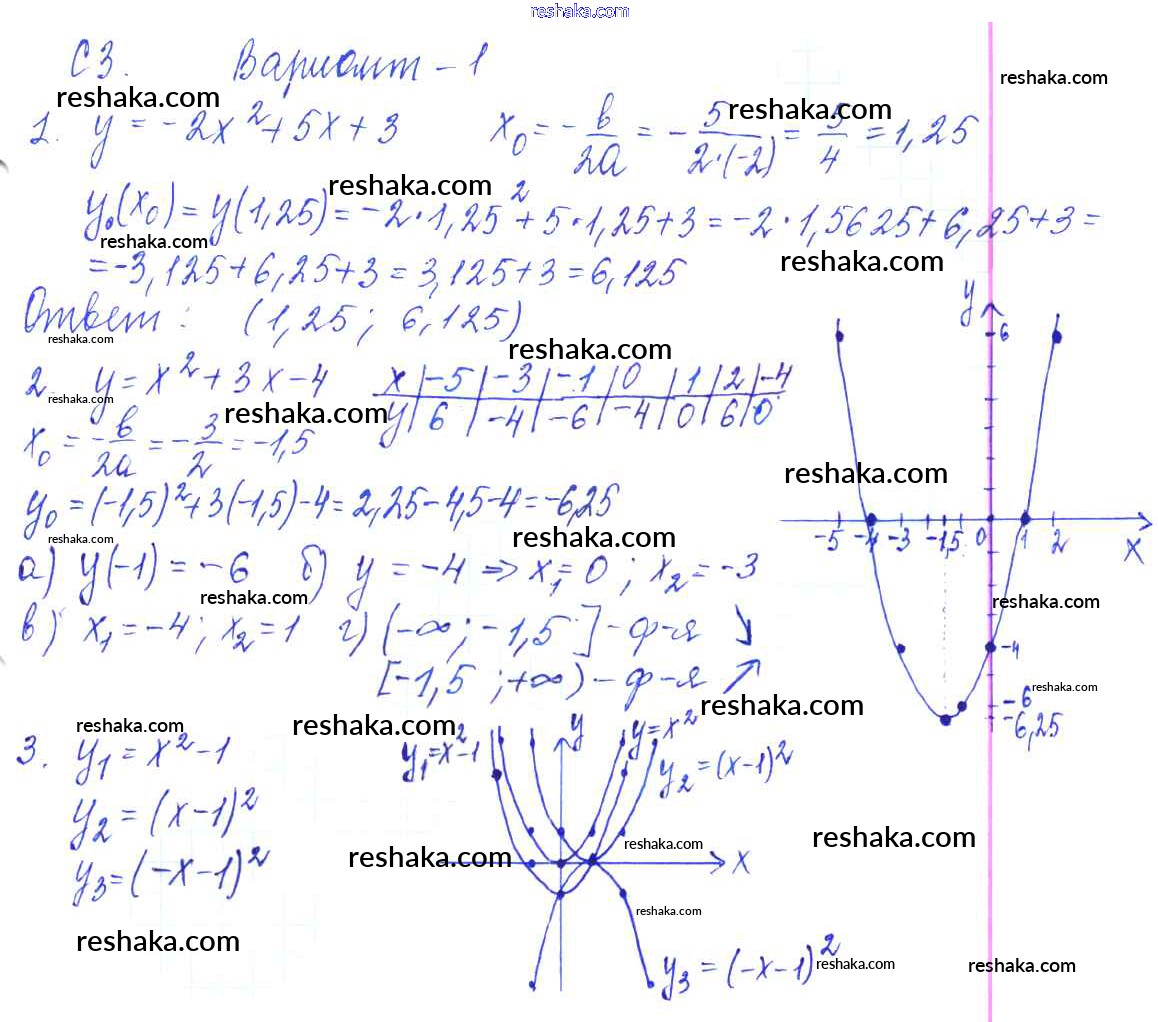 reshaka.com
С3. Вариант – 1
reshaka.com
reshaka.com
reshaka.com
1. y = -2x² + 5x + 3   x₀ = -в/2а = -5/(2·(-2)) = 5/4 = 1,25
reshaka.com
y₀(x₀) = y(1,25) = -2·1,25² + 5·1,25 + 3 = -2·1,5625 + 6,25 + 3 =
reshaka.com
reshaka.com
= -3,125 + 6,25 + 3 = 3,125 + 3 = 6,125
Ответ: (1,25; 6,125)
reshaka.com
reshaka.com
2. y = x² + 3x - 4
reshaka.com
reshaka.com
x | -5 | -3 | -1 | 0 | 1 | 2 | -4
y | 6 | -4 | -6 | -4 | 0 | 6 | 0
x₀ = -в/2а = -3/2 = -1,5
reshaka.com
y₀ = (-1,5)² + 3(-1,5) - 4 = 2,25 - 4,5 - 4 = -6,25
reshaka.com
reshaka.com
а) y(-1) = -6   б) y = -4 ⇒ x₁ = 0; x₂ = -3
reshaka.com
в) x₁ = -4; x₂ = 1   г) (-∞; -1,5] - ф-я ↘
[-1,5; +∞) - ф-я ↗
y
6
-5 -4 -3 -1,5 0 1 2
x
reshaka.com
-4
-6
reshaka.com
-6,25
reshaka.com
reshaka.com
reshaka.com
3. y₁ = x² - 1
y₂ = (x-1)²
y₃ = (-x-1)²
reshaka.com
y₁ = x² - 1
y
y = x²
y₂ = (x-1)²
reshaka.com
reshaka.com
reshaka.com
x
reshaka.com
y₃ = (-x-1)²
reshaka.com
reshaka.com